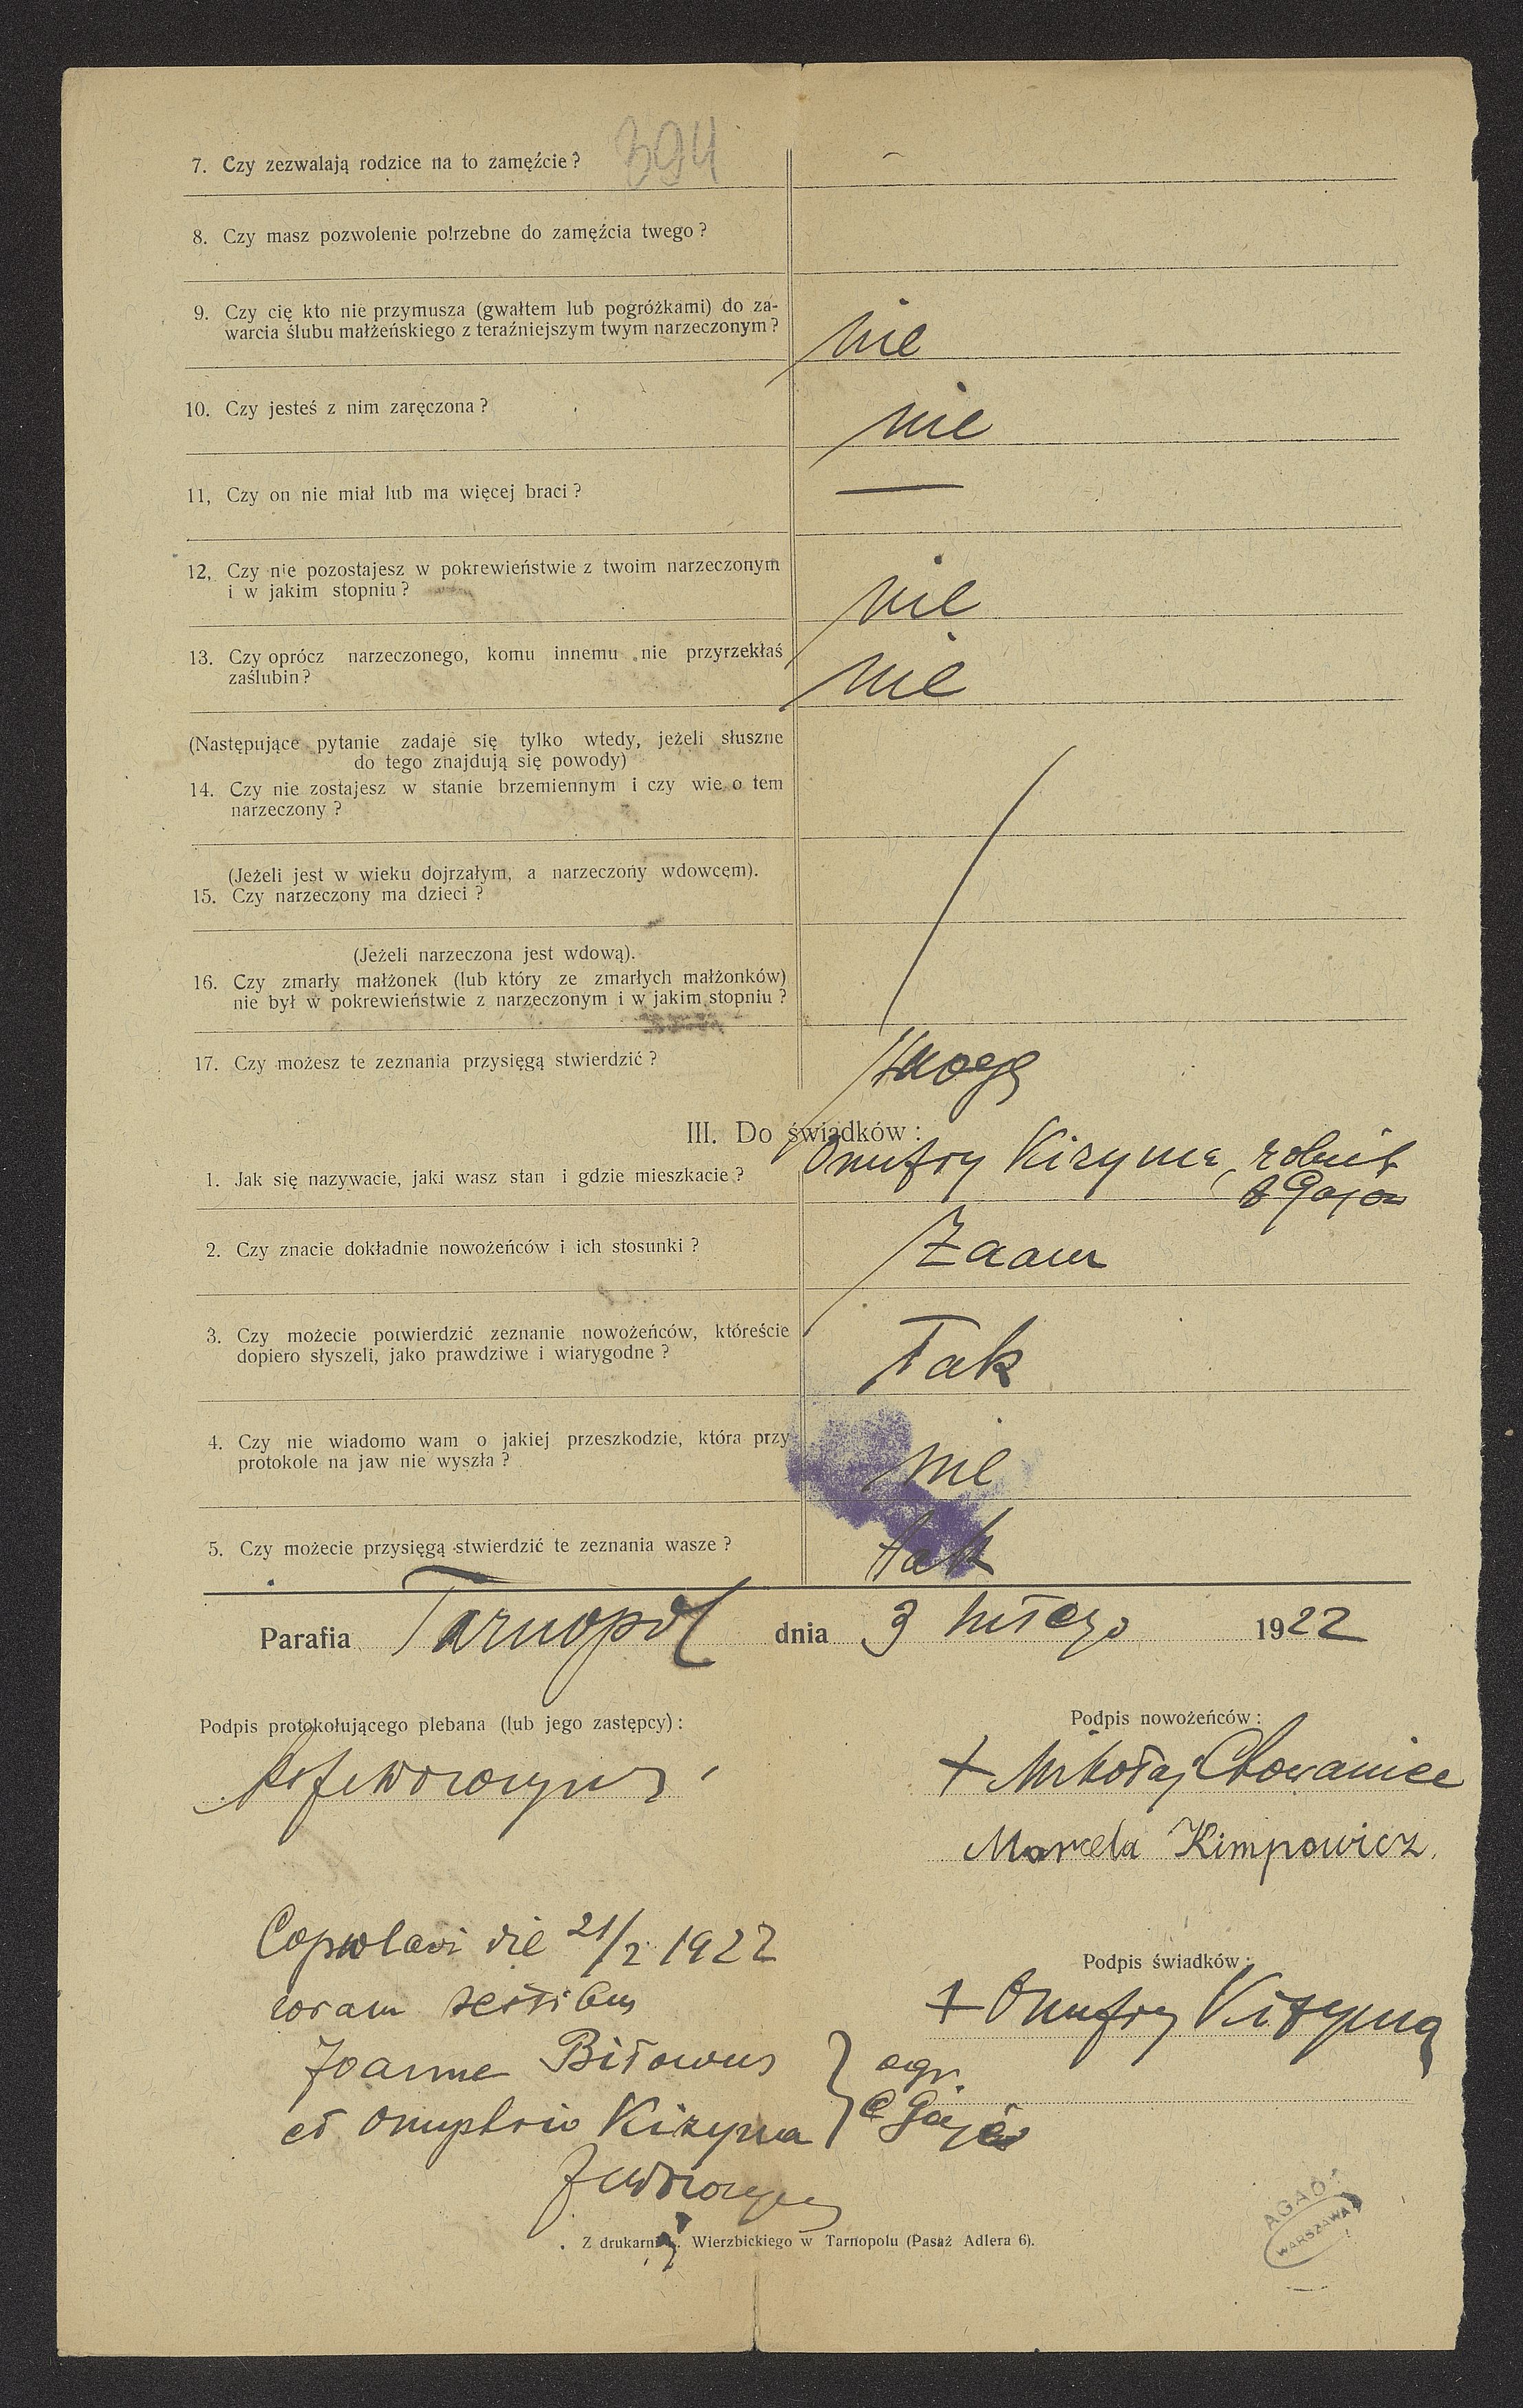 394
7. Czy zezwalają rodzice na to zamęźcie?
8. Czy masz pozwolenie potrzebne do zamęźcia twego?
9. Czy cię kto nie przymusza (gwałtem lub pogróżkami) do za-
warcia ślubu małżeńskiego z teraźniejszym twym narzeczonym?
nie
10. Czy jesteś z nim zaręczona?
nie
11, Czy on nie miał lub ma więcej braci?
—
12, Czy nie pozostajesz w pokrewieństwie z twoim narzeczonym
i w jakim stopniu?
nie
13. Czy oprócz narzeczonego, komu innemu nie przyrzekłaś
zaślubin?
nie
(Następujące pytanie zadaje się tylko wtedy, jeżeli słuszne
do tego znajdują się powody)
14. Czy nie zostajesz w stanie brzemiennym i czy wie o tem
narzeczony?
(Jeżeli jest w wieku dojrzałym, a narzeczony wdowcem).
15. Czy narzeczony ma dzieci?
(Jeżeli narzeczona jest wdową).
16. Czy zmarły małżonek (lub który ze zmarłych małżonków)
nie był w pokrewieństwie z narzeczonym i w jakim stopniu?
17. Czy możesz te zeznania przysięgą stwierdzić?
Mogę
III. Do świadków:
1. Jak się nazywacie, jaki wasz stan i gdzie mieszkacie?
Onufry Kizyma, robnik
z Gajów
2. Czy znacie dokładnie nowożeńców i ich stosunki?
Znam
3. Czy możecie potwierdzić zeznanie nowożeńców, któreście
dopiero słyszeli, jako prawdziwe i wiarygodne?
Tak
4. Czy nie wiadomo wam o jakiej przeszkodzie, która przy
protokole na jaw nie wyszła?
nie
5. Czy możecie przysięgą stwierdzić te zeznania wasze?
tak
Parafia Tarnopol dnia 3 lutego 1922
Podpis protokołującego plebana (lub jego zastępcy):
Podpis nowożeńców:
+ Mikołaj Chowaniec
Marcela Kimpowicz.
Copulavi die 21/2 1922
coram testibus
Joanne Biłowus
et Onuphrio Kizyma } agr.
e Gaje
Podpis świadków:
+ Onufry Kizyma
Z drukarni Wierzbickiego w Tarnopolu (Pasaż Adlera 6).
AGAD
WARSZAWA